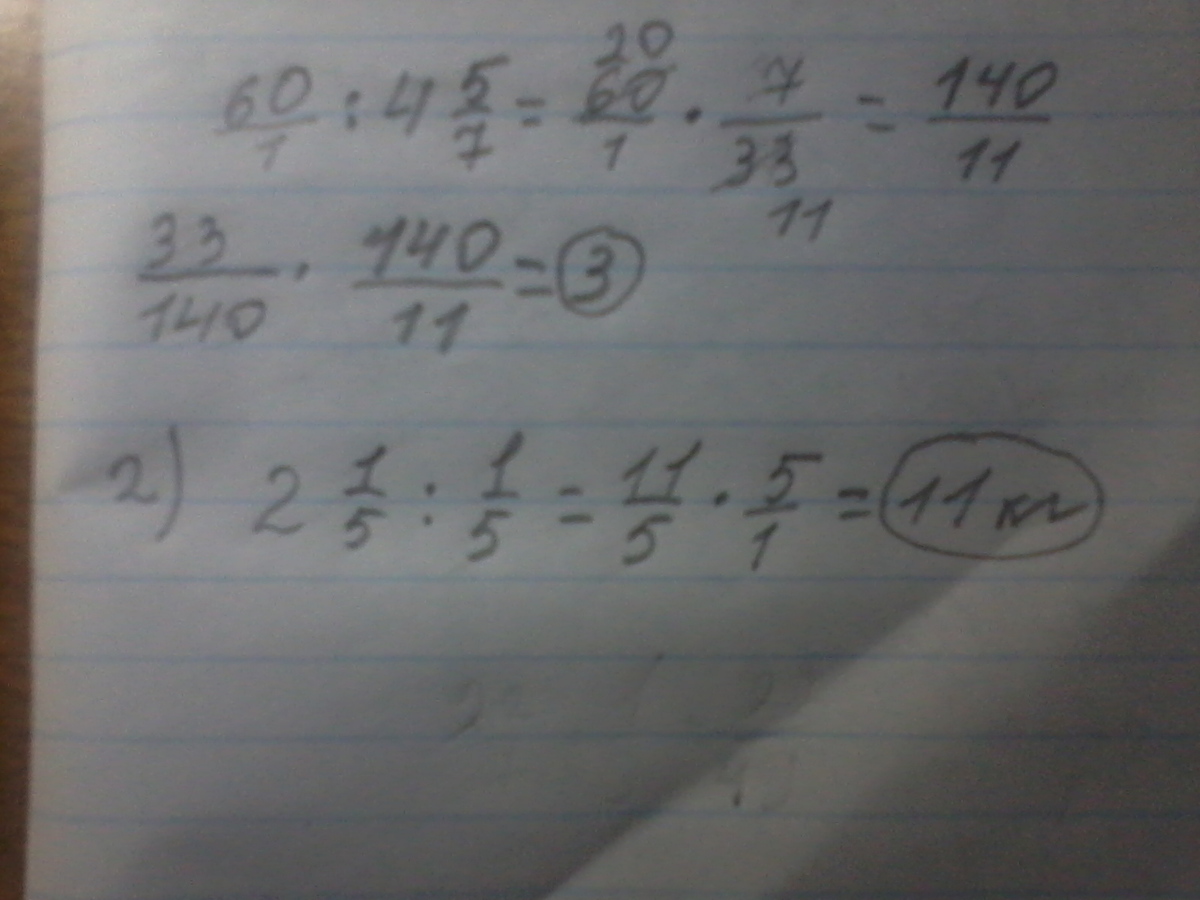 60/1 : 4 5/7 = 20 60/1 · 7/33 11 = 140/11
33/140 · 140/11 = 3
2) 2 1/5 : 1/5 = 11/5 · 5/1 = 11 кг